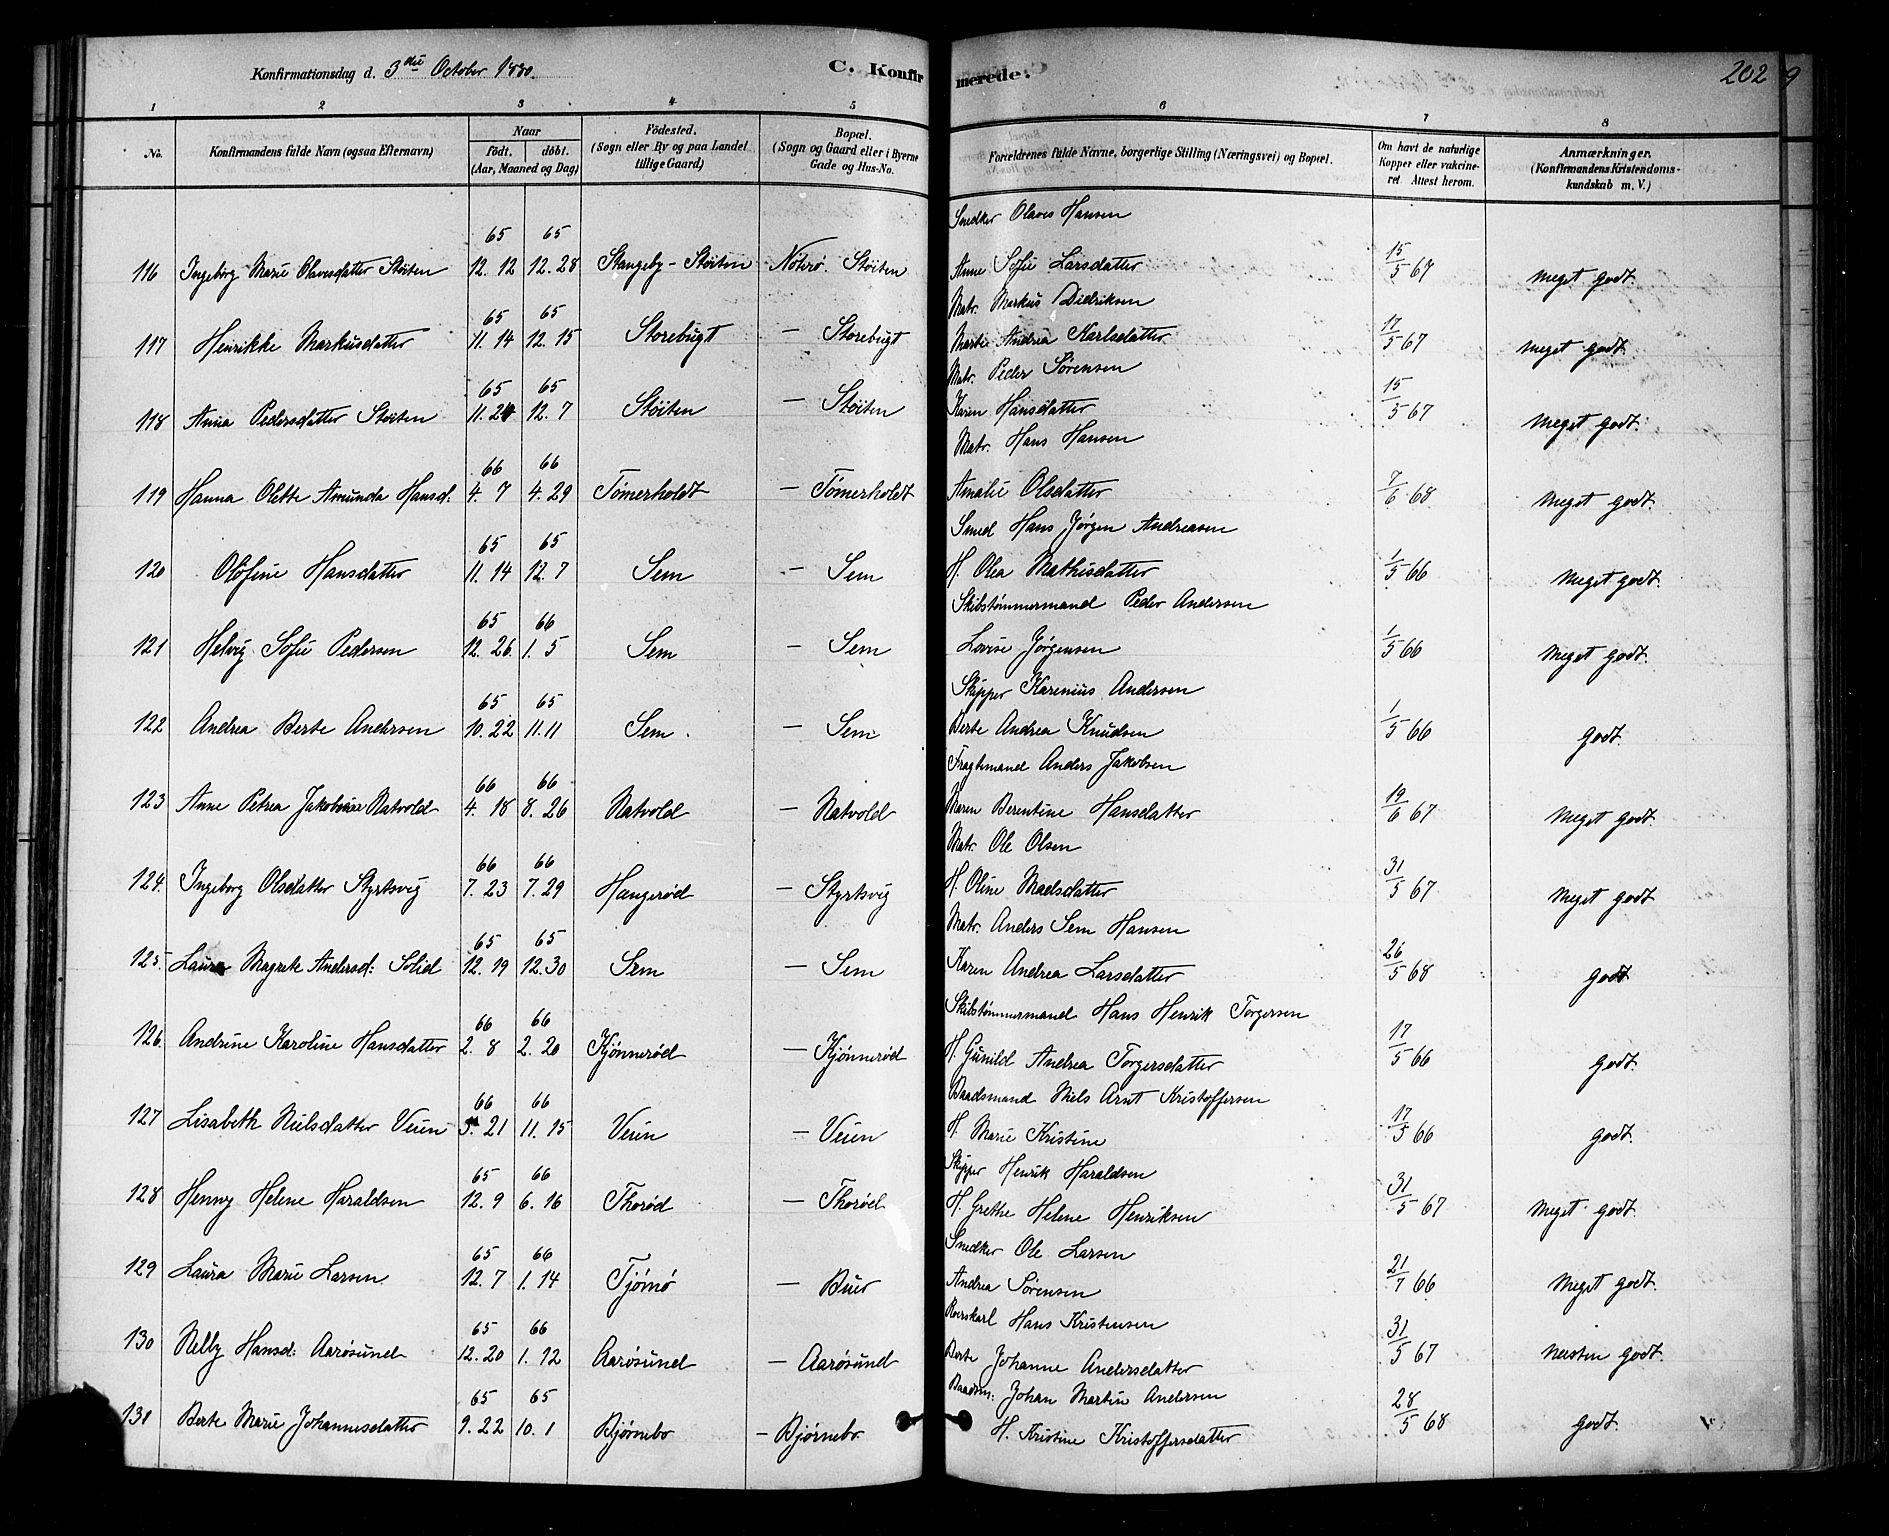 Konfirmationsdag d. 3die October 1880.
C. Konfirmerede.
202
9
1 2 3 4 5 6 7 8
No. Konfirmandens fulde Navn (ogsaa Efternavn) Naar født. døbt. (Aar, Maaned og Dag) Fødested. (Sogn eller By og paa Landet tillige Gaard) Bopæl. (Sogn og Gaard eller i Byerne Gade og Hus-No. Forældrenes fulde Navne, borgerlige Stilling (Næringsvei) og Bopæl. Om havt de naturlige Kopper eller vakcineret. Attest herom. Anmærkninger. (Konfirmandens Kristendomskundskab m. V.)
65 65 Snedker Olaves Hansen
116 Ingeborg Marie Olavesdatter Støiten 12. 12 12. 28 Stangeby - Støiten Nøterø. Støiten Anne Sofie Larsdatter 15/5 67 Meget godt.
65 65 Matr. Markus Didriksen
117 Henrikke Markusdatter 11. 14 12. 15 Storebugt — Storebugt Marte Andrea Karlsdatter 17/5 67 Meget godt
65 65 Matr. Peder Sørensen
118 Anna Pedersdatter Støiten 11. 24 12. 7 Støiten — Støiten Karen Hansdatter 15/5 67 Meget godt.
66 66 Matr. Hans Hansen
119 Hanna Olette Amunda Hansd: 4. 7 4. 29 Tømerholdt — Tømerholdt Amalie Olsdatter 7/6 68 Meget godt.
65 65 Smed Hans Jørgen Andreasen
120 Olofine Hansdatter 11. 14 12. 7 Sem — Sem H. Olea Mathisdatter 1/5 66 Meget godt.
65 66 Skibstømmermand Peder Andersen
121 Helvig Sofie Pedersen 12. 26. 1. 5 Sem — Sem Lovise Jørgensen 1/5 66 Meget godt.
65 65 Skipper Karenius Andersen
122 Andrea Berte Andersen 10. 22 11. 11 Sem — Sem Berte Andrea Knudsen 1/5 66 godt.
66 66 Fragtmand Anders Jakobsen
123 Anne Petrea Jakobsine Natvold 4. 18 8. 26 Natvold — Natvold Maren Berentine Hansdatter 19/6 67 Meget godt.
66 66 Matr. Ole Olsen
124. Ingeborg Olsdatter Styrtsvig 7. 23 7. 29 Haugerød — Styrtsvig H. Oline Madsdatter 31/5 67 Meget godt
65 65 Matr. Anders Sem Hansen
125. Laura Magrete Andersd: Solid 12. 19 12. 30 Sem — Sem Karen Andrea Larsdatter 26/5 68 godt
66 66 Skibstømmermand Hans Henrik Torgersen
126. Andrine Karoline Hansdatter 2. 8 2. 20 Kjønnerød — Kjønnerød H. Gunild Andrea Torgersdatter 17/5 66 godt.
66 66 Baadsmand Niels Arnt Kristoffersen
127 Lisabeth Nielsdatter Veien 5. 21 11. 15 Veien — Veien H. Marie Kristine 17/5 66 godt.
65 66 Skipper Henrik Haraldsen
128 Henny Helene Haraldsen 12. 9 6. 16 Thorød — Thorød H. Grethe Helene Henriksen 31/5 67 Meget godt.
65 66 Snedker Ole Larsen
129 Laura Marie Larsen 12. 7 1. 14 Tjømø — Buer Andrea Sørensen 21/7 66 Meget godt.
65 66 Roerskarl Hans Kristensen
130 Nelly Hansd: Aarøsund 12. 20 1. 12 Aarøsund — Aarøsund Berte Johanne Andersdatter 31/5 67 næsten godt.
65 65 Baadsm: Johan Martin Andersen
131 Berte Marie Johannesdatter 9. 22 10. 1 Bjørnebo — Bjørnebo. H. Kristine Kristoffersdatter 28/5 68 godt.